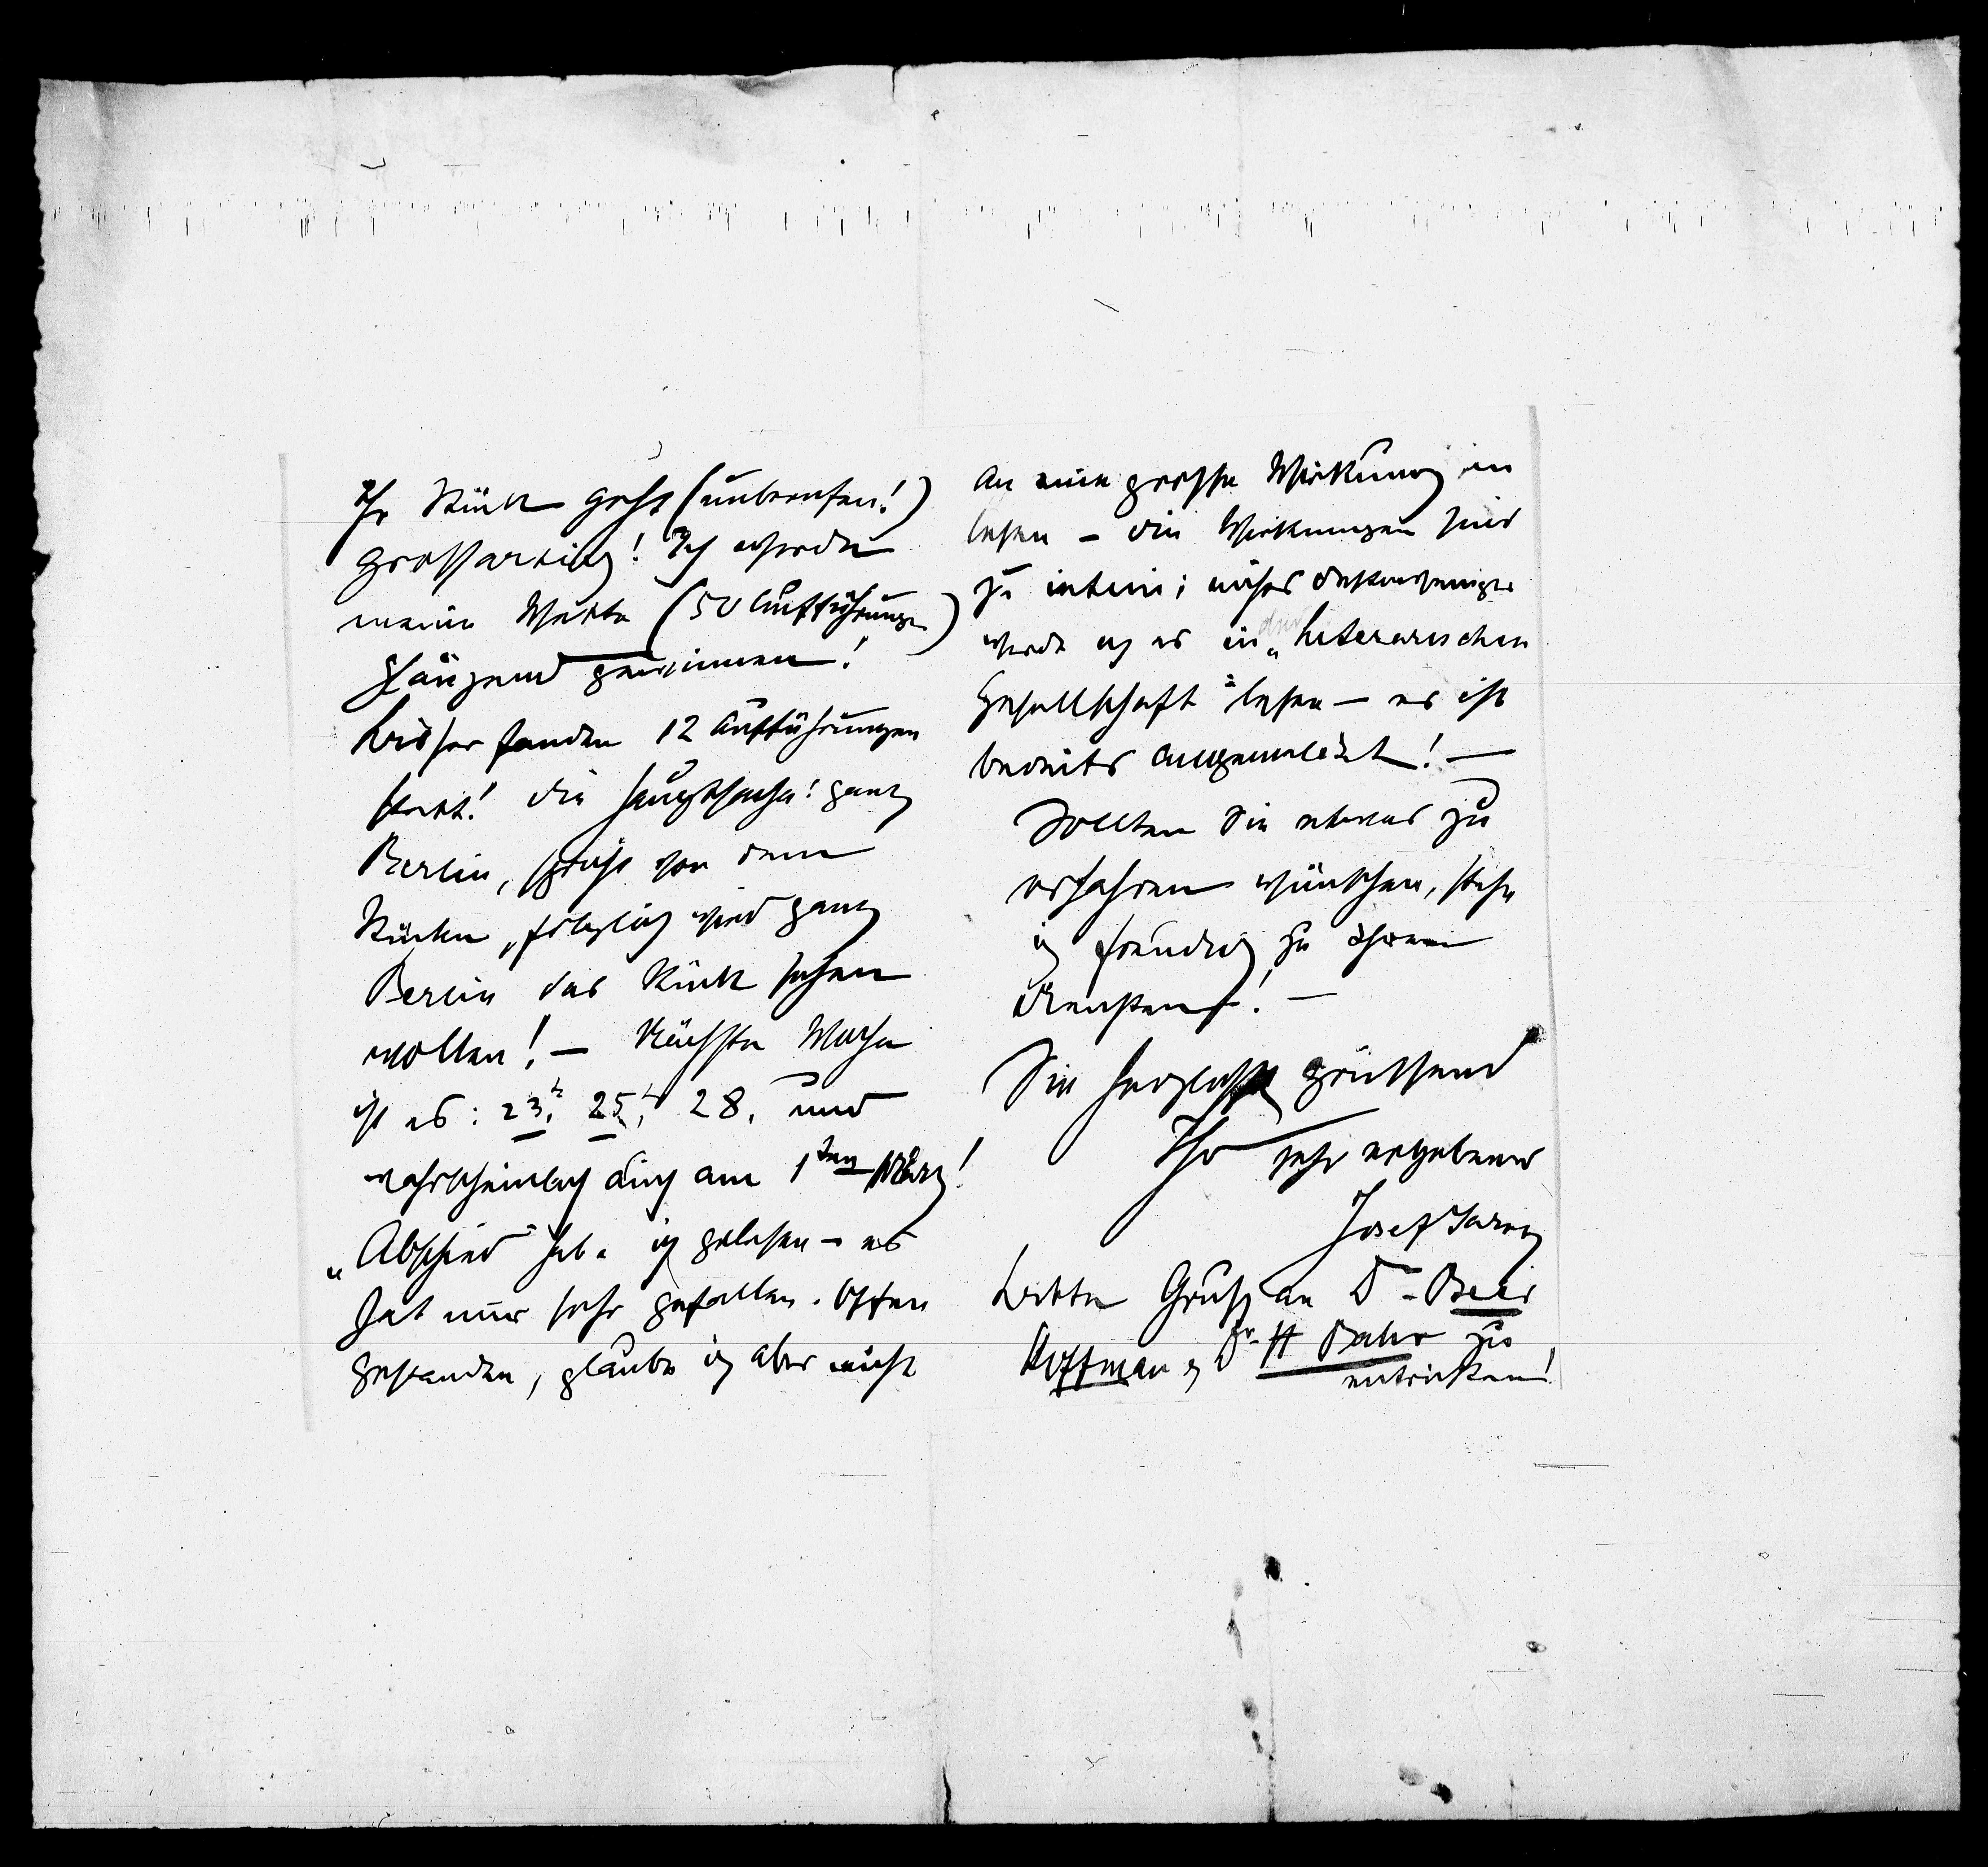 Ihr Stück geht (unberufen!)
grossartig! Ich werde
meine Wette (50 Aufführungen)
glänzend gewinnen!
Bisher fanden 12 Aufführungen
statt! Die Hauptsache: ganz
Berlin, spricht von dem
Stücke, folglich wird ganz
Berlin das Stück sehen
wollen! — Nächste Woche
ist es: 23., 25., 28. und
wahrscheinlich auch am 1ten März!
„Abschied“ habe ich gelesen – es
hat mir sehr gefallen. Offen
gestanden, glaube ich aber nicht
an eine grosse Wirkung im
lesen – die Wirkungen sind
zu intim; nichts destoweniger
werde ich es in der „Literarischen
Gesellschaft“ lesen — es ist
bereits angemeldet! —
Sollten Sie etwas zu
erfahren wünschen, stehe
ich freudig zu Ihren
Diensten! —
Sie herzlichst grüssend
Ihr sehr ergebener
Josef Jarno
Bitte Gruss an Dr. Beer
Hoffman & Dr. H Bahr zu
entrichten!